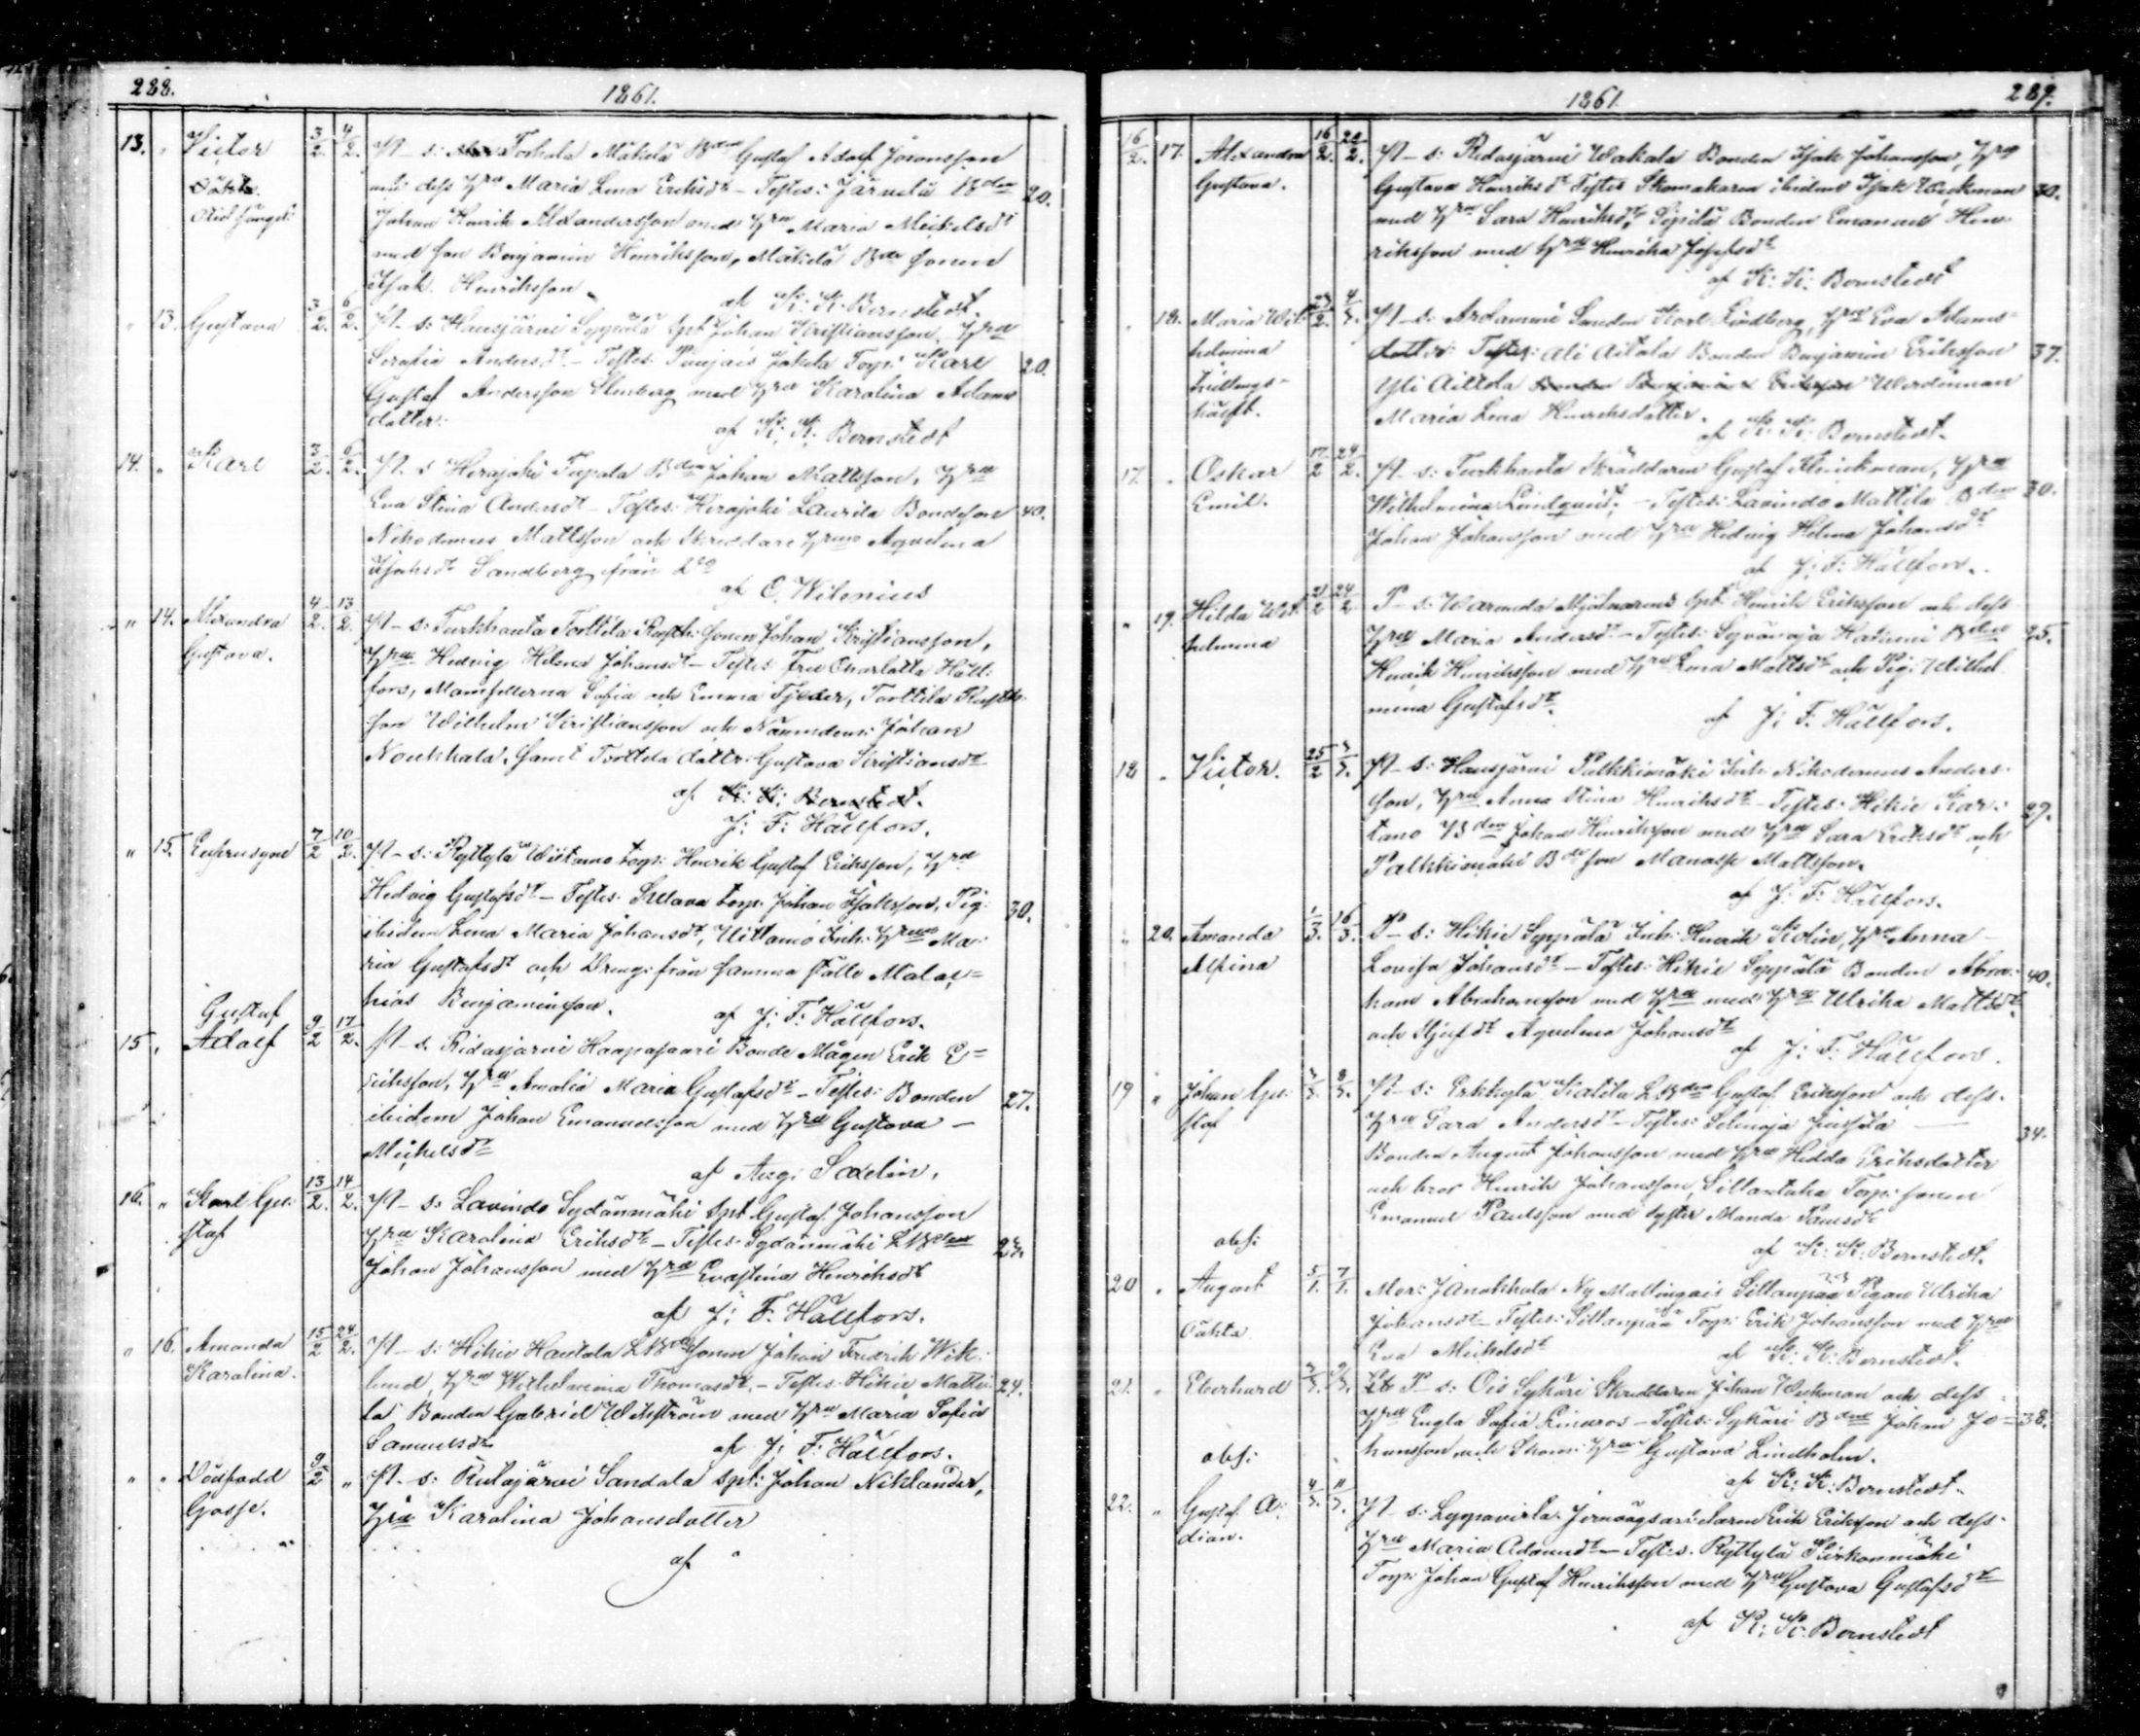 288.
1861.
13. Victor 3/2. 4/2. Torhola Mäkelä Gustaf Adolf
Oäkta och dess Hru Maria Lena Eriksdr – Testes: Järvelä Bden 20.
Johan Henrik Alexandersson med Hru Maria Mickelsdr
med son Benjamin Henriksson, Mäkelä sonen
Isak Henriksson
af K: K: Bornstedt.
" 13. Gustava 3/2. 6/2. P. s: Hausjärvi Seppälä Spt Johan Kristiansson, Hru
Serafia Andersdr – Testes: Jokela Torp: Karl 20.
Gustaf Andersson med Hru Karolina Adams
dotter.
af K: K: Bornstedt
14. " Karl 3/2. 6/2. P. s Herajoki Bden Johan Mattsson, Hru
Eva Stina Andersdr – Testes: Herajoki Laurila Bondeson 40.
Nikodemus Mattsson och Skreddare Hrun Aqvelina
Isaksdr Sandberg från
af O. Wilenius
" 14. Alexandra 4/2. 13/2. P – s: Turkhauta Torttila sonen Johan Kristiansson,
Gustava. Hru Hedvig Helena Johansdr – Testes: Fru Charlotta Häll-
fors, Mamsellerna Sofia och Emma Tjeder, Torttila
son Wilhelm Kristiansson och Nämndem: Johan
Noukkala, samt Torttila dottr: Gustava Kristiansdr
af K: K: Bornstedt.
J: F: Hällfors.
" 15. Eufrosyne 7/2 10/2. P – s: Ryttylä torp: Henrik Gustaf Eriksson, Hru
Hedvig Gustafsdr – Testes: torp. Johan Isaksson, Pig: 30.
ibidem Lena Maria Johansdr, Inh: Hrun Ma-
ria Gustafsdr och Dreng: från samma ställe Malac-
hias Benjaminson.
af J: F: Hällfors.
Gustaf
15. Adolf 9/2 17/2. P – s. Ridasjärvi Haapasaari Bonde Mågen Erik E=
riksson, Hru Amalia Maria Gustafsdr – Testes: Bonden 27.
ibidem Johan Emanuelsson med Hru Gustava –
Mickelsdr
af Aug: Saxelin.
16. " Karl Gu- 13/2. 14/2. P – s: Lavindo Sydänmäki Spt Gustaf Johansson
staf Hru Karolina Eriksdr – Testes: Sydänmäki
Johan Johansson med Hru Evastina Henriksdr
af J: F: Hällfors.
" 16. Amanda 15/2 24/2. P – s: Hikie Hautala sonen Johan Fredrik Wik-
Karolina. lund, Hru Wilhelmina Thomasdr. – Testes: Hikie Matti- 24.
la Bonden Gabriel Wikström med Hru Maria Sofia
Samuelsdr
af J: F: Hällfors.
" " Dödfödd 9/2 " P. s: Ridasjärvi Sandala Spt: Johan Niklander,
Gosse. Hru Karolina Johansdotter
af
1861.
289.
16/2. 17. Alexandra 16/2. 24/2. P – s: Ridasjärvi Wakala Bonden Isak Johansson, Hru
Gustava. Gustava Henriksdr Testes Skomakaren ibidem Isak Wickman 30.
med Hru Sara Henriksdr, Bonden Emanuel Hen-
riksson med Hru Henrika Josefsdr
af K: K: Bornstedt
" 18. Maria Wil- 23/2. 4/3. P – s. Karl Lindberg, Hru Eva Adams-
helmina dotter: Testes: Ali Aitola Bonden Benjamin Eriksson 37.
tvillings- Yli Aittola Bonden Benjamin Eriksson Werdinnan
hälft. Maria Lena Henriksdotter.
af K: K: Bornstedt.
17. " Oskar 17/2 24/2. P – s: Turkhauta Skräddaren Gustaf Hru
Emil. Wilhelmina Lindqvist. – Testes: Lavindo Mattila Bden 30.
Johan Johansson med Hru Hedvig Helena Johansdr
af J: F: Hällfors.
" 19. Hilda Wil- 21/2 24/2 P – s: Spt: Henrik Eriksson och dess
helmina Hru Maria Andersdr – Testes: Syvänoja Bden 25.
Henrik Henriksson med Hru Lena Mattsdr och Pig: Wilhel-
mina Gustafsdr.
af J: F: Hällfors.
18 " Victor. 25/2 3/3. P – s: Hausjärvi Palkkimäki Inh: Nikodemus Anders-
son, Hru Anna Stina Henriksdr – Testes: Hikie Kar- 29.
tano Bden Johan Henriksson med Hru Sara Eriksdr och
Palkkimäki son Manasse Mattsson.
af J: F: Hällfors.
" 20. Amanda 1/3. 16/3. P – s: Hikie Seppälä Inh: Henrik Kolin, Hru Anna
Alfina Lovisa Johansdr – Testes: Hikie Seppälä Bonden Abra- 40.
ham Abrahamsson med Hru med Hru Ulrika Mattsdr
och Aqvelina Johansdr
af J: F: Hällfors.
19 " Johan Gu- 3/3. 8/3. P – s: Erkkylä Gustaf Eriksson och dess
staf Hru Sara Andersdr – Testes: Selinoja Jussila — 34.
Bonden August Johansson med Hru Hedda Eriksdotter
och bror Henrik Johansson, Sillantaka Torp: sonen
Emanuel Paulsson med syster Manda Paulsdr
af K: K: Bornstedt.
obs:
20 " August 5/1. 7/1. Mor: Janakkala Ny Mallingais Sillanpää Pigan Ulrika
Oäkta Johansdr – Testes: Sillanpää Torp: Erik Johansson med Hru
Eva Mickelsdr
af K: K: Bornstedt.
21. " Eberhard P – s: Ois Sykäri Skreddaren Johan Wickman och dess
Hru Engla Sofia Lindros – Testes: Sykäri Bden Johan Jo- 38.
hansson och Hru Gustava Lindholm.
obs:
af K: K: Bornstedt.
22. " Gustaf A- 4/3. 11/3. P – s: Leppävirta Jernvägsarbetaren Erik Eriksson och dess
dian. Hru Maria Adamsdr – Testes. Ryttylä Kirkonmäki
Torp: Johan Gustaf Henriksson med Hru Gustava Gustafsdr
af K: K: Bornstedt